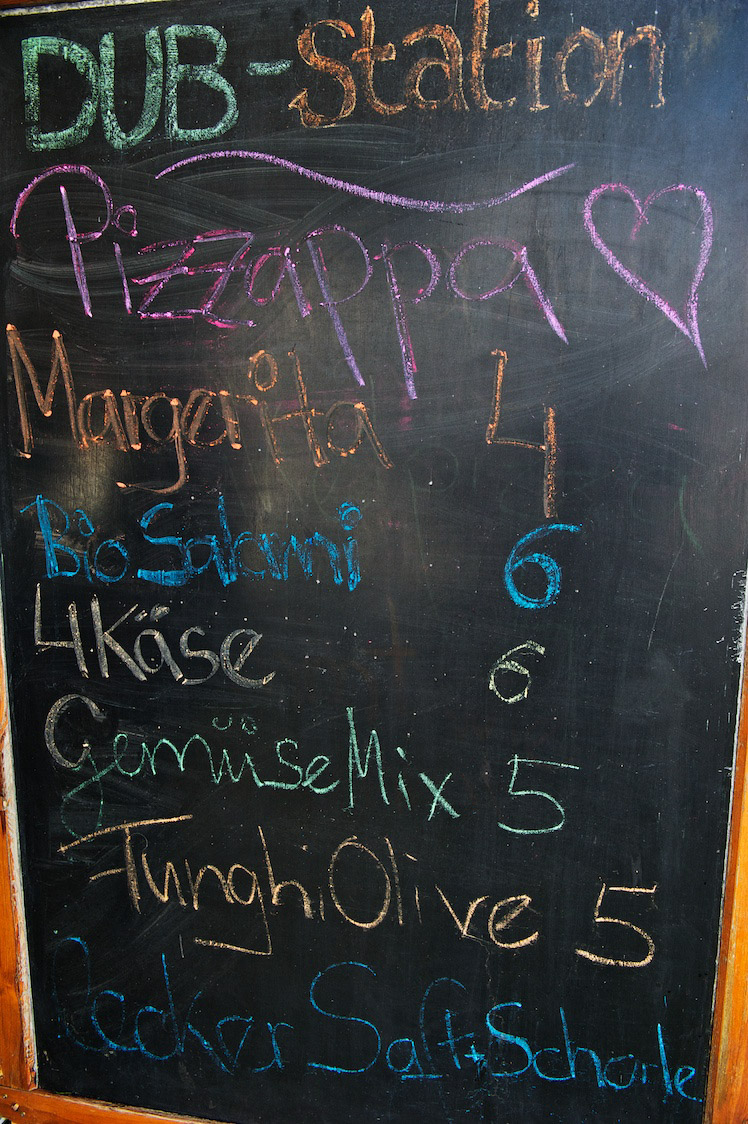 DUB-Station
Pizzappa
Margerita 4
Bio Salami 6
4 Käse 6
Gemüse Mix 5
Funghi Olive 5
Lecker Saft + Schorle